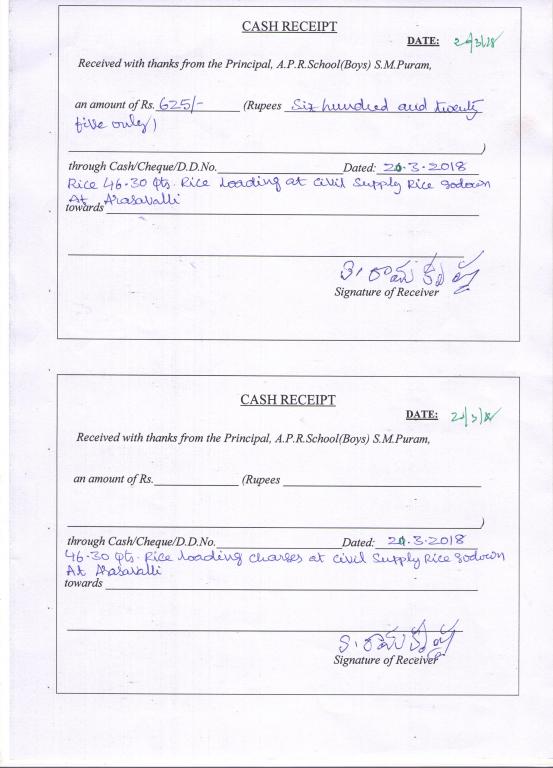 CASH RECEIPT
DATE:
Received with thanks from the Principal, A.P.R.School(Boys) S.M.Puram,
an amount of Rs. 625/- (Rupees Six hundred and twenty
five only)
)
through Cash/Cheque/D.D.No. Dated: 20.3.2018
Rice 46.30 Qts. Rice Loading at civil Supply Rice godown
At Arasavalli
towards
Signature of Receiver
CASH RECEIPT
DATE:
Received with thanks from the Principal, A.P.R.School(Boys) S.M.Puram,
an amount of Rs. (Rupees
)
through Cash/Cheque/D.D.No. Dated: 20.3.2018
46.30 Qts. Rice loading charges at civil Supply Rice godown
At Arasavalli
towards
Signature of Receiver